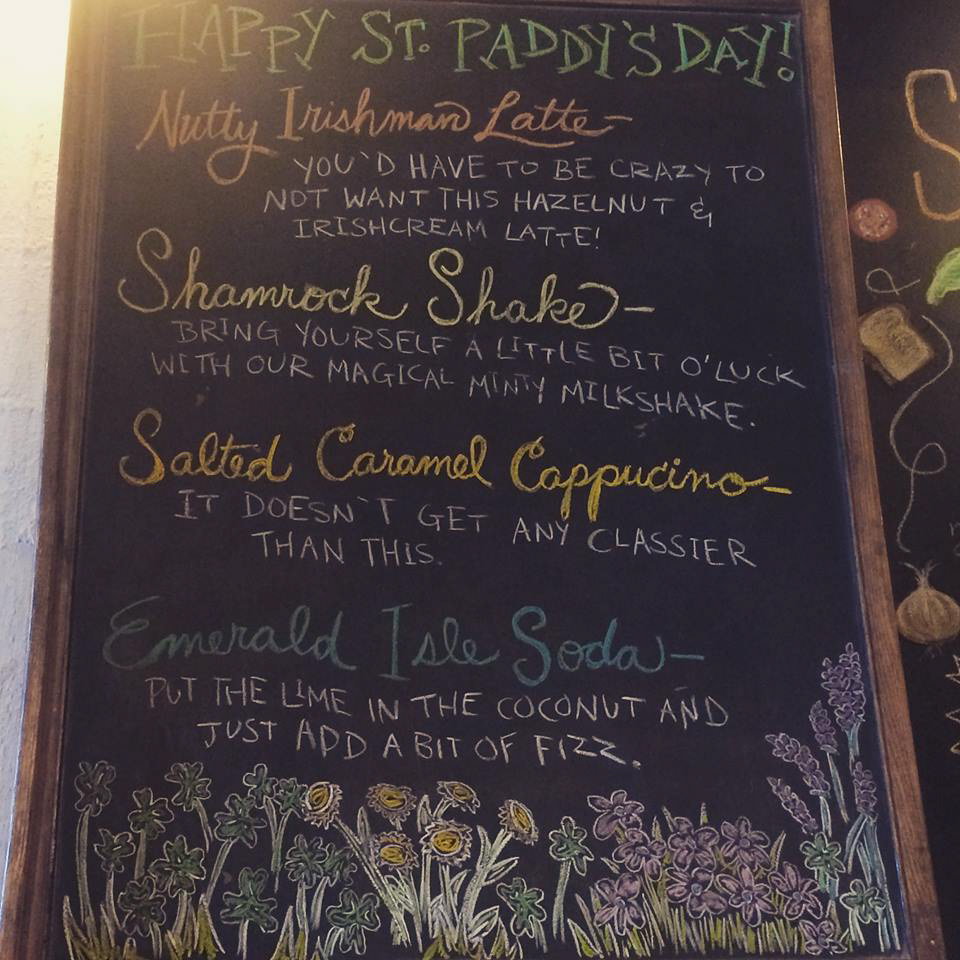 HAPPY ST. PADDY'S DAY!
Nutty Irishman Latte-
YOU'D HAVE TO BE CRAZY TO
NOT WANT THIS HAZELNUT &
IRISHCREAM LATTE!
Shamrock Shake-
BRING YOURSELF A LITTLE BIT O'LUCK
WITH OUR MAGICAL MINTY MILKSHAKE.
Salted Caramel Cappucino-
IT DOESN'T GET ANY CLASSIER
THAN THIS.
Emerald Isle Soda-
PUT THE LIME IN THE COCONUT AND
JUST ADD A BIT OF FIZZ.